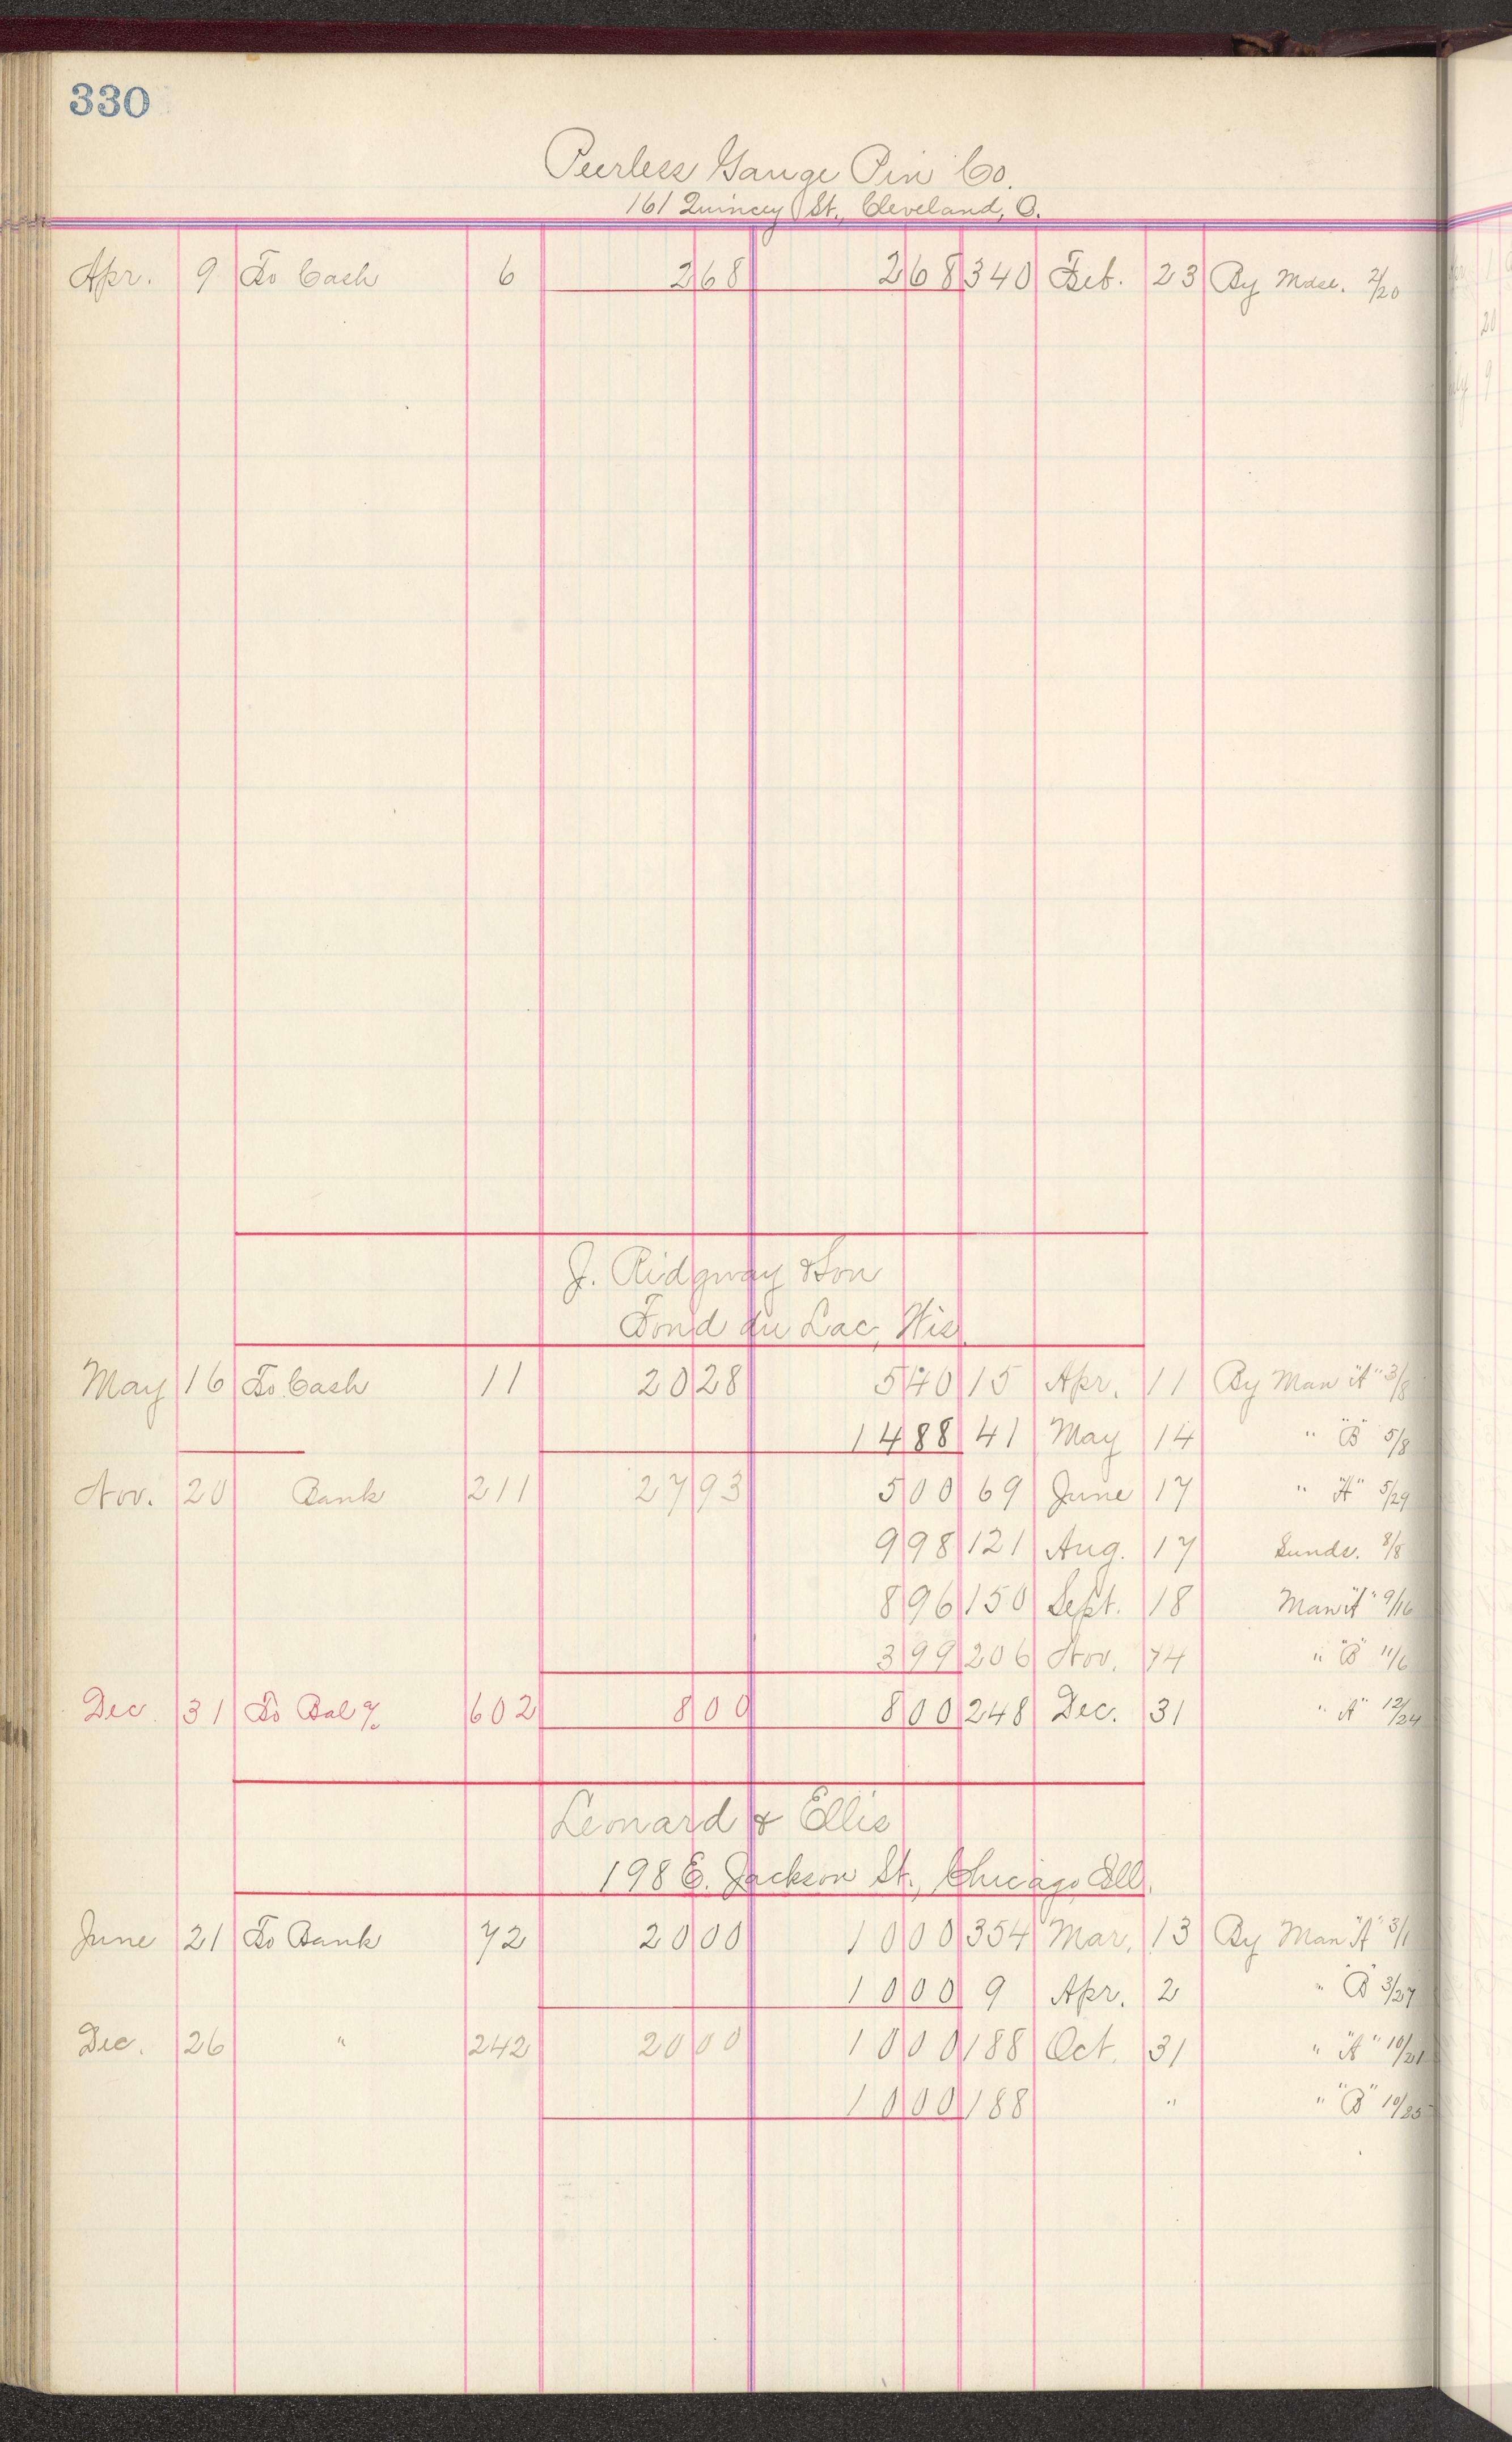 330
Peerless Gauge Pin Co.
161 Quincey St., Cleveland, O.
Apr. 9 To Cash 6 2 68 2 68 340 Feb. 23 By Mdse. 2/20
J. Ridgway & Son
Fond du Lac, Wis.
May 16 To Cash 11 20 28 5 40 15 Apr. 11 By Man "A" 3/8
14 88 41 May 14 " "B" 5/8
Nov. 20 Bank 211 27 93 5 00 69 June 17 " "A" 5/29
9 98 121 Aug. 17 Sunds. 8/8
8 96 150 Sept. 18 Man "A" 9/16
3 99 206 Nov. 14 " "B" 11/6
Dec. 31 To Bal % 602 8 00 8 00 248 Dec. 31 " A" 12/24
Leonard & Ellis
198 E. Jackson St., Chicago, Ill.
June 21 To Bank 72 20 00 10 00 354 Mar. 13 By Man "A" 3/1
10 00 9 Apr. 2 " "B" 3/27
Dec. 26 " 242 20 00 10 00 188 Oct. 31 " "A" 10/21
10 00 188 " " "B" 10/25